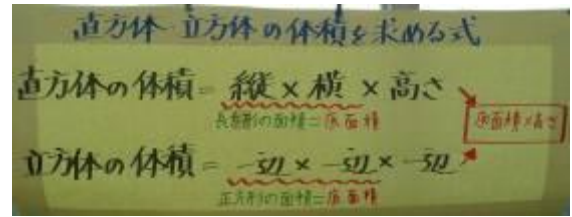 直方体・立方体の体積を求める式
直方体の体積 = 縦 × 横 × 高さ
長方形の面積=底面積
底面積×高さ
立方体の体積 = 一辺 × 一辺 × 一辺
正方形の面積=底面積